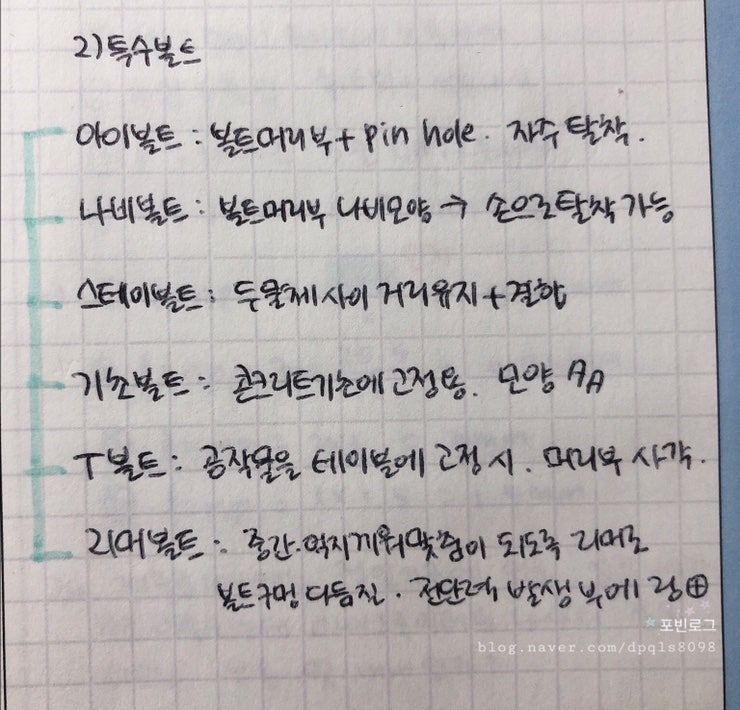 2) 특수볼트
아이볼트 : 볼트머리부 + pin hole. 자주 탈착.
나비볼트 : 볼트머리부 나비모양 → 손으로탈착 가능
스테이볼트 : 두물체 사이 거리유지 + 결합
기초볼트 : 콘크리트기초에 고정용. 모양
T볼트 : 공작물을 테이블에 고정 시. 머리부 사각.
리머볼트 : 중간·억지끼워맞춤이 되도록 리머로
볼트구멍 다듬질. 전단력 발생 부에 링 ⊕
포빈로그
blog.naver.com/dpqls8098